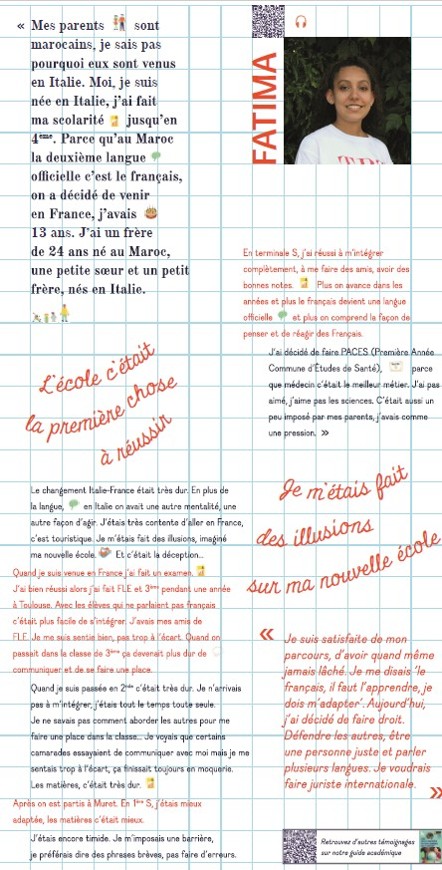 « Mes parents sont
marocains, je sais pas
pourquoi eux sont venus
en Italie. Moi, je suis
née en Italie, j'ai fait
ma scolarité jusqu'en
4ème. Parce qu'au Maroc
la deuxième langue
officielle c'est le français,
on a décidé de venir
en France, j'avais
13 ans. J'ai un frère
de 24 ans né au Maroc,
une petite sœur et un petit
frère, nés en Italie.
L'école c'était
la première chose
à réussir
Le changement Italie-France était très dur. En plus de
la langue, en Italie on avait une autre mentalité, une
autre façon d'agir. J'étais très contente d'aller en France,
c'est touristique. Je m'étais fait des illusions, imaginé
ma nouvelle école. Et c'était la déception...
Quand je suis venue en France j'ai fait un examen.
J'ai bien réussi alors j'ai fait FLE et 3ème pendant une année
à Toulouse. Avec les élèves qui ne parlaient pas français
c'était plus facile de s'intégrer. J'avais mes amis de
FLE. Je me suis sentie bien, pas trop à l'écart. Quand on
passait dans la classe de 3ème ça devenait plus dur de
communiquer et de se faire une place.
Quand je suis passée en 2nde c'était très dur. Je n'arrivais
pas à m'intégrer, j'étais tout le temps toute seule.
Je ne savais pas comment aborder les autres pour me
faire une place dans la classe... Je voyais que certains
camarades essayaient de communiquer avec moi mais je me
sentais trop à l'écart, ça finissait toujours en moquerie.
Les matières, c'était très dur.
Après on est partis à Muret. En 1ère S, j'étais mieux
adaptée, les matières c'était mieux.
J'étais encore timide. Je m'imposais une barrière,
je préférais dire des phrases brèves, pas faire d'erreurs.
FATIMA
En terminale S, j'ai réussi à m'intégrer
complètement, à me faire des amis, avoir des
bonnes notes. Plus on avance dans les
années et plus le français devient une langue
officielle et plus on comprend la façon de
penser et de réagir des Français.
J'ai décidé de faire PACES (Première Année
Commune d'Études de Santé), parce
que médecin c'était le meilleur métier. J'ai pas
aimé, j'aime pas les sciences. C'était aussi un
peu imposé par mes parents, j'avais comme
une pression. »
Je m'étais fait
des illusions
sur ma nouvelle école
« Je suis satisfaite de mon
parcours, d'avoir quand même
jamais lâché. Je me disais 'le
français, il faut l'apprendre, je
dois m'adapter'. Aujourd'hui,
j'ai décidé de faire droit.
Défendre les autres, être
une personne juste et parler
plusieurs langues. Je voudrais
faire juriste internationale. »
Retrouvez d'autres témoignages
sur notre guide académique